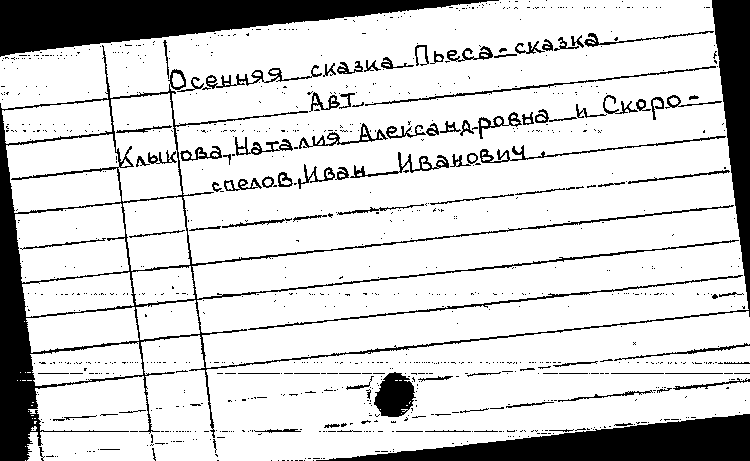 Осенняя сказка. Пьеса-сказка.
Авт.
Клыкова, Наталия Александровна и Скоро-
спелов, Иван Иванович.